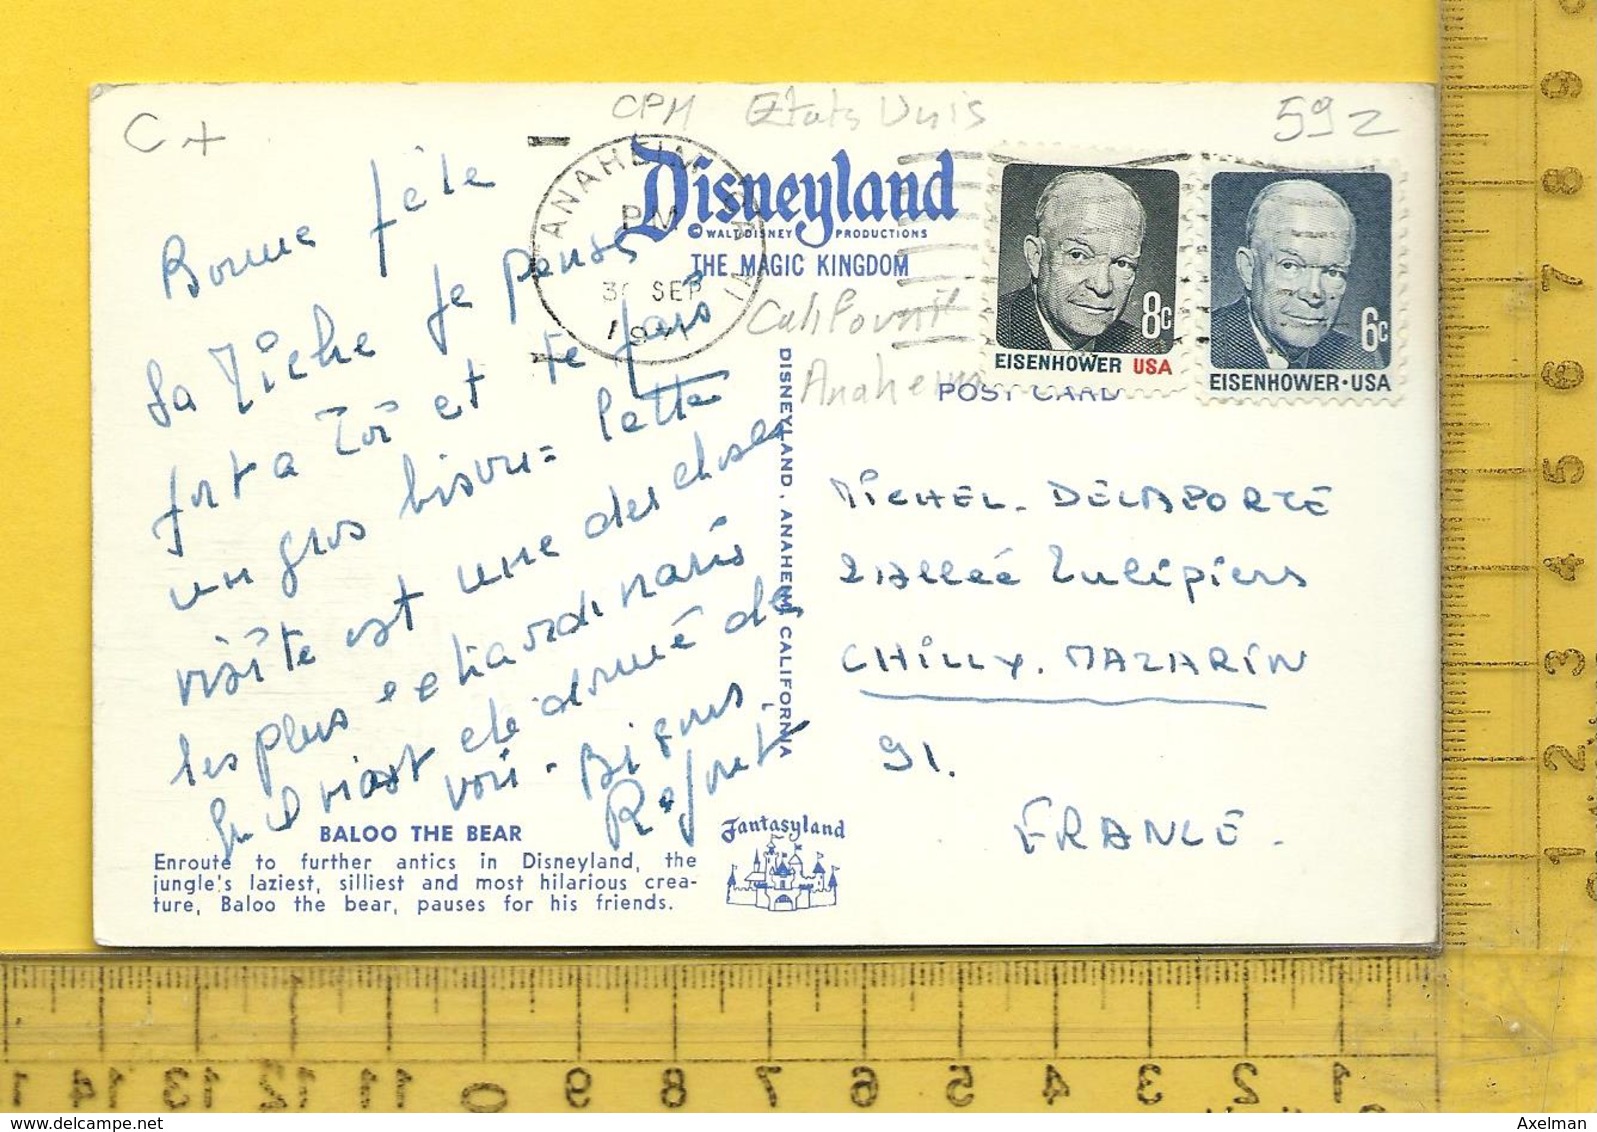 C +
CPM Etats Unis
592
Bonne fête
La Miche je pense
fort a Toi et te fais
un gros bisou = cette
visite est une des choses
les plus extraordinaires
qu'il m'ait été donné de
voir - Bisous
Disneyland
© WALT DISNEY PRODUCTIONS
THE MAGIC KINGDOM
ANAHEIM
PM
30 SEP
1971
California
Anaheim
8c
EISENHOWER USA
6c
EISENHOWER·USA
POST CARD
DISNEYLAND, ANAHEIM, CALIFORNIA
MICHEL. DELAPORTE
2 Allée Tulipiers
CHILLY. MAZARIN
91.
FRANCE.
BALOO THE BEAR
Enroute to further antics in Disneyland, the
jungle's laziest, silliest and most hilarious crea-
ture, Baloo the bear, pauses for his friends.
Fantasyland
9
8
7
6
5
4
3
2
1
14 13 12 11 10 9 8 7 6 5 4 3 2 1
www.delcampe.net
Axelman